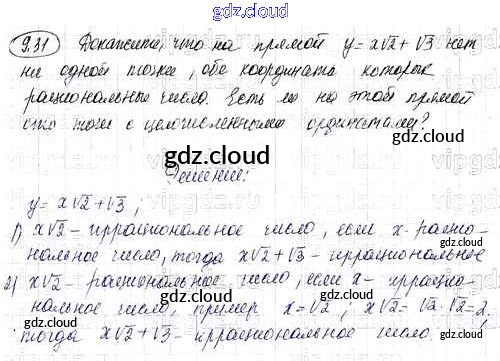 gdz.cloud
9.31 Докажите, что на прямой y = x√2 + √3 нет
ни одной точки, обе координата которых
рациональные число. Есть ли на этой прямой
точки с целочисленными ординатами?
gdz.cloud
Решение:
y = x√2 + √3 ;
1) x√2 - иррациональное число, если x - рацио-
нальное число, тогда x√2 + √3 - иррациональное
2) x√2 - рациональное число, если x - иррацио-
нальное число, пример x = √2 ; x√2 = √2 · √2 = 2,
тогда x√2 + √3 - иррациональное число.
gdz.cloud